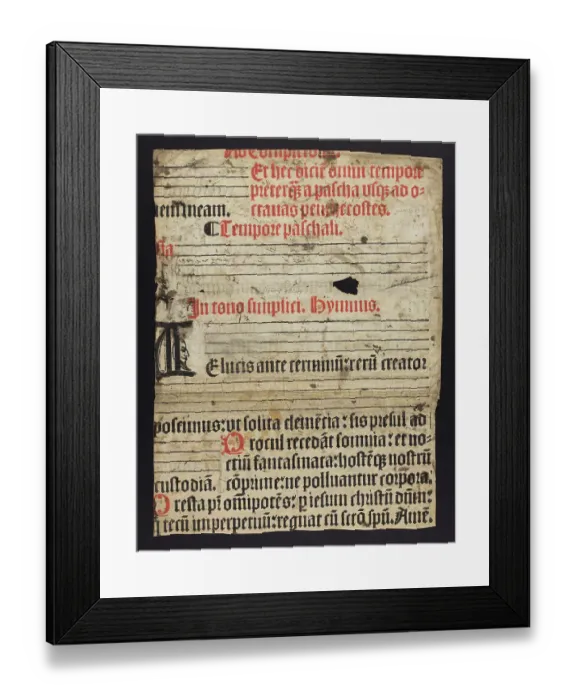 Ad Completoriu.
Et hec dicit̃ omni tempore
preterqȝ a pascha usqȝ ad o-
meam. ctavas penthecostes.
¶Tempore paschali.
In tono simplici. Hymnus.
TE lucis ante terminũ: rerũ creator
poscimus: ut solita clemẽtia: sis presul ad
custodiã. Procul recedãt somnia: et no-
ctiũ fantasmata: hostẽqȝ nostrũ
cõprime: ne polluantur corpora.
Presta pr̃ omĩpotẽs: per iesum christũ dñm:
qui tecũ in perpetuũ: regnat cũ sctõ spũ. Amẽ.